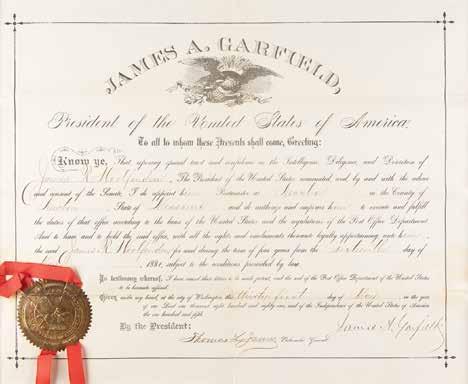 JAMES A. GARFIELD,
President of the United States of America,
To all to whom these Presents shall come, Greeting:
Know ye, That reposing special trust and confidence in the Intelligence, Diligence, and Discretion of
James R. The President of the United States nominated, and by and with the advice
and consent of the Senate, did appoint him Postmaster at in the County of
State of and do authorize and empower him to execute and fulfill
the duties of that office according to the laws of the United States and the regulations of the Post Office Department
And to have and to hold the said office, with all the rights and emoluments thereunto legally appertaining unto
the said James R. for and during the term of four years from the day of
1881, subject to the conditions prescribed by law.
In testimony whereof, I have caused these letters to be made patent, and the seal of the Post Office Department of the United States
to be hereunto affixed.
Given under my hand, at the city of Washington, the day of May, in the year
of our Lord one thousand eight hundred and eighty one, and of the Independence of the United States of America
the one hundred and fifth.
By the President:
James A. Garfield
Thomas L. James Postmaster General